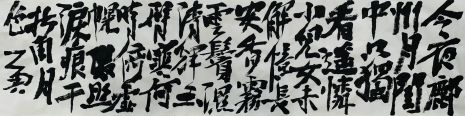 今夜鄜
州月閨
中只獨
看遙憐
小兒女未
解憶長
安香霧
雲鬟濕
清輝玉
臂寒何
時倚虛
幌雙照
淚痕干
杜甫月